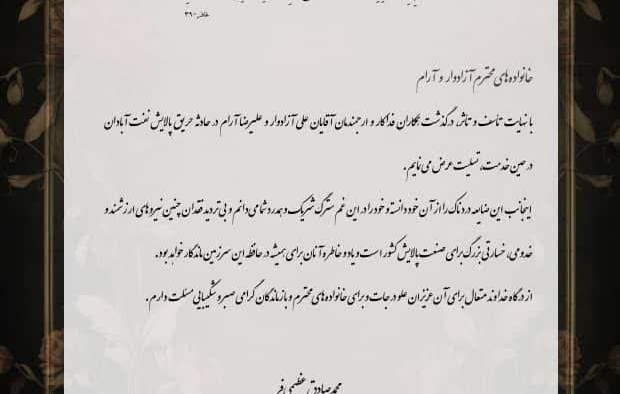 خانواده‌های محترم آزادوار و آرام
با نهایت تاسف و تاثر، درگذشت همکاران فداکار و ارجمندمان آقایان علی آزادوار و علیرضا آرام در حادثه حریق پالایش نفت آبادان
در حین خدمت، تسلیت عرض می‌نمایم.
اینجانب این ضایعه دردناک را از آن خود دانسته و خود را در این غم سترگ شریک و همدرد شما می‌دانم و بی‌تردید فقدان چنین نیروهای ارزشمند و
خدومی، خسارتی بزرگ برای صنعت پالایش کشور است و یاد و خاطره آنان برای همیشه در حافظه این سرزمین ماندگار خواهد بود.
از درگاه خداوند متعال برای آن عزیزان علو درجات و برای خانواده‌های محترم و بازماندگان گرامی صبر و شکیبایی مسئلت دارم.
محمدصادق عظیمی‌فر